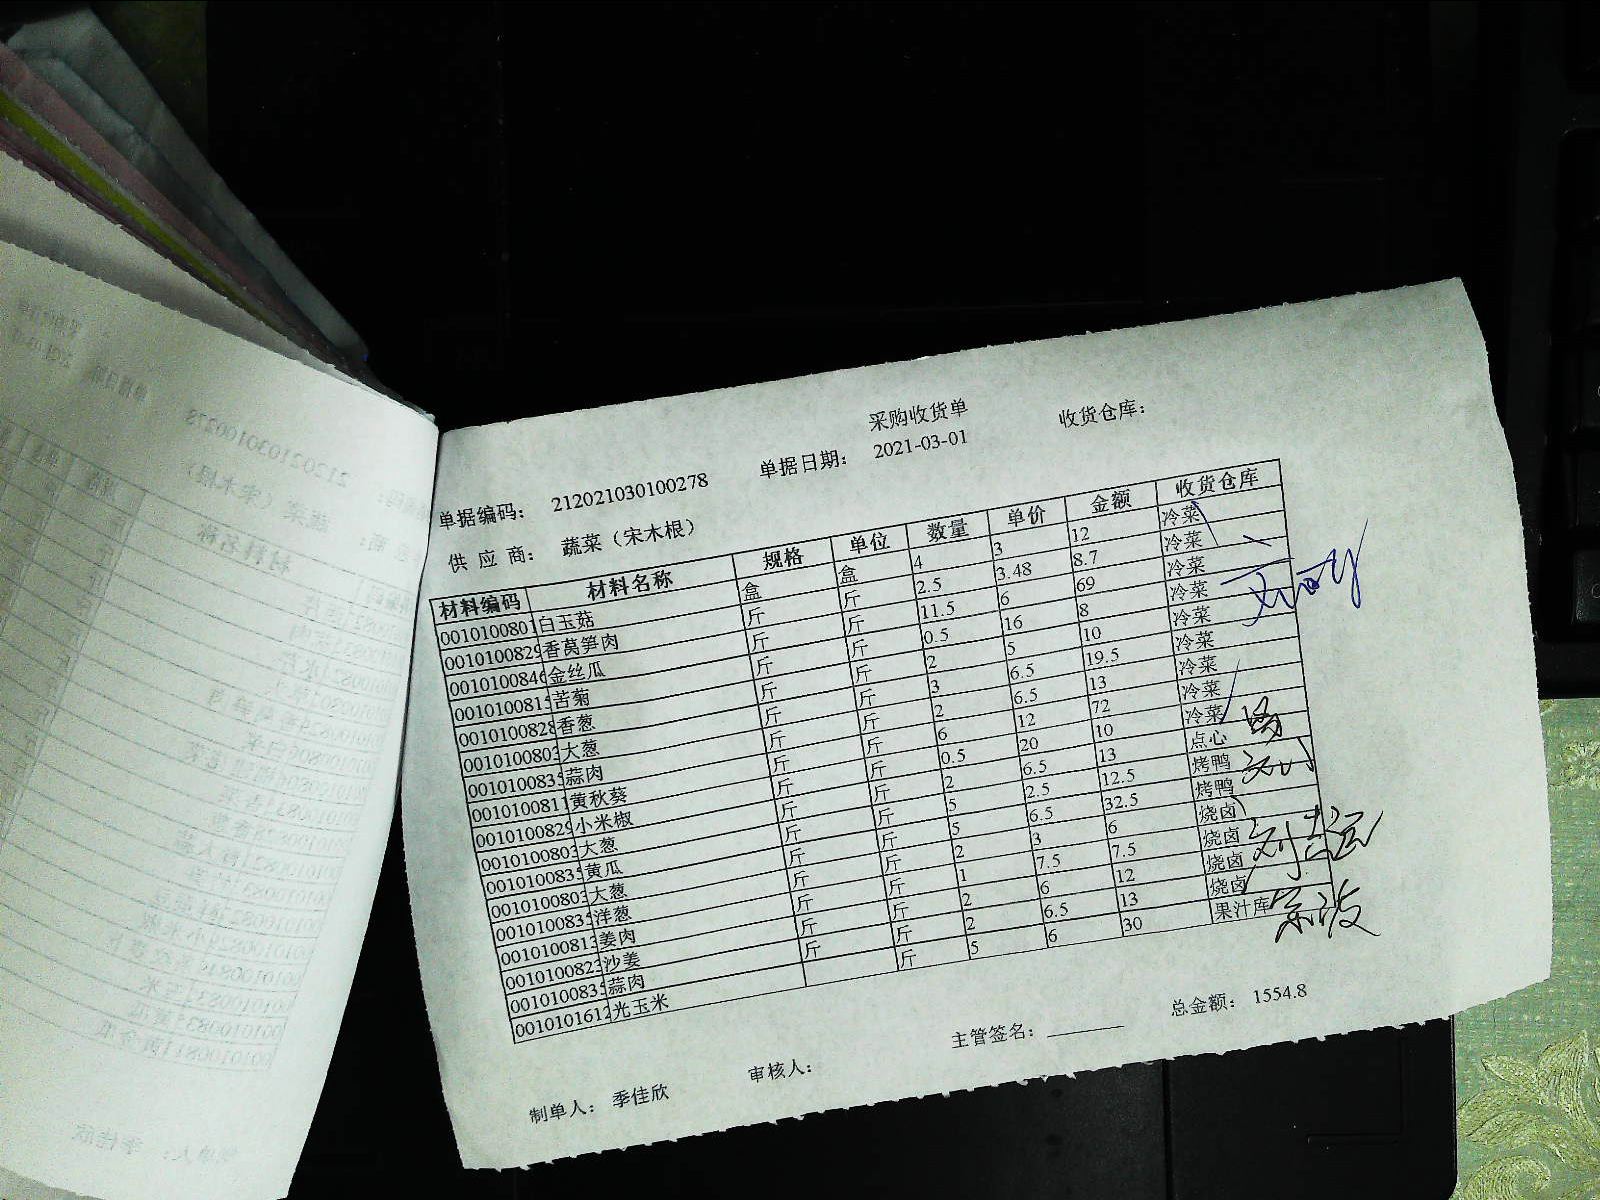 采购收货单
单据编码： 212021030100278 单据日期： 2021-03-01 收货仓库：
供 应 商： 蔬菜（宋木根）
材料编码 材料名称 规格 单位 数量 单价 金额 收货仓库
0010100801 白玉菇 盒 盒 4 3 12 冷菜
0010100829 香莴笋肉 斤 斤 2.5 3.48 8.7 冷菜
0010100846 金丝瓜 斤 斤 11.5 6 69 冷菜
0010100815 苦菊 斤 斤 0.5 16 8 冷菜
0010100828 香葱 斤 斤 2 5 10 冷菜
0010100803 大葱 斤 斤 3 6.5 19.5 冷菜
0010100835 蒜肉 斤 斤 2 6.5 13 冷菜
0010100811 黄秋葵 斤 斤 6 12 72 冷菜
0010100829 小米椒 斤 斤 0.5 20 10 冷菜
0010100803 大葱 斤 斤 2 6.5 13 点心
0010100835 黄瓜 斤 斤 5 2.5 12.5 烤鸭
0010100803 大葱 斤 斤 5 6.5 32.5 烤鸭
0010100835 洋葱 斤 斤 2 3 6 烧卤
0010100813 姜肉 斤 斤 1 7.5 7.5 烧卤
0010100823 沙姜 斤 斤 2 6 12 烧卤
0010100835 蒜肉 斤 斤 2 6.5 13 烧卤
0010101612 光玉米 斤 5 6 30 果汁库
制单人： 季佳欣 审核人： 主管签名： 总金额： 1554.8